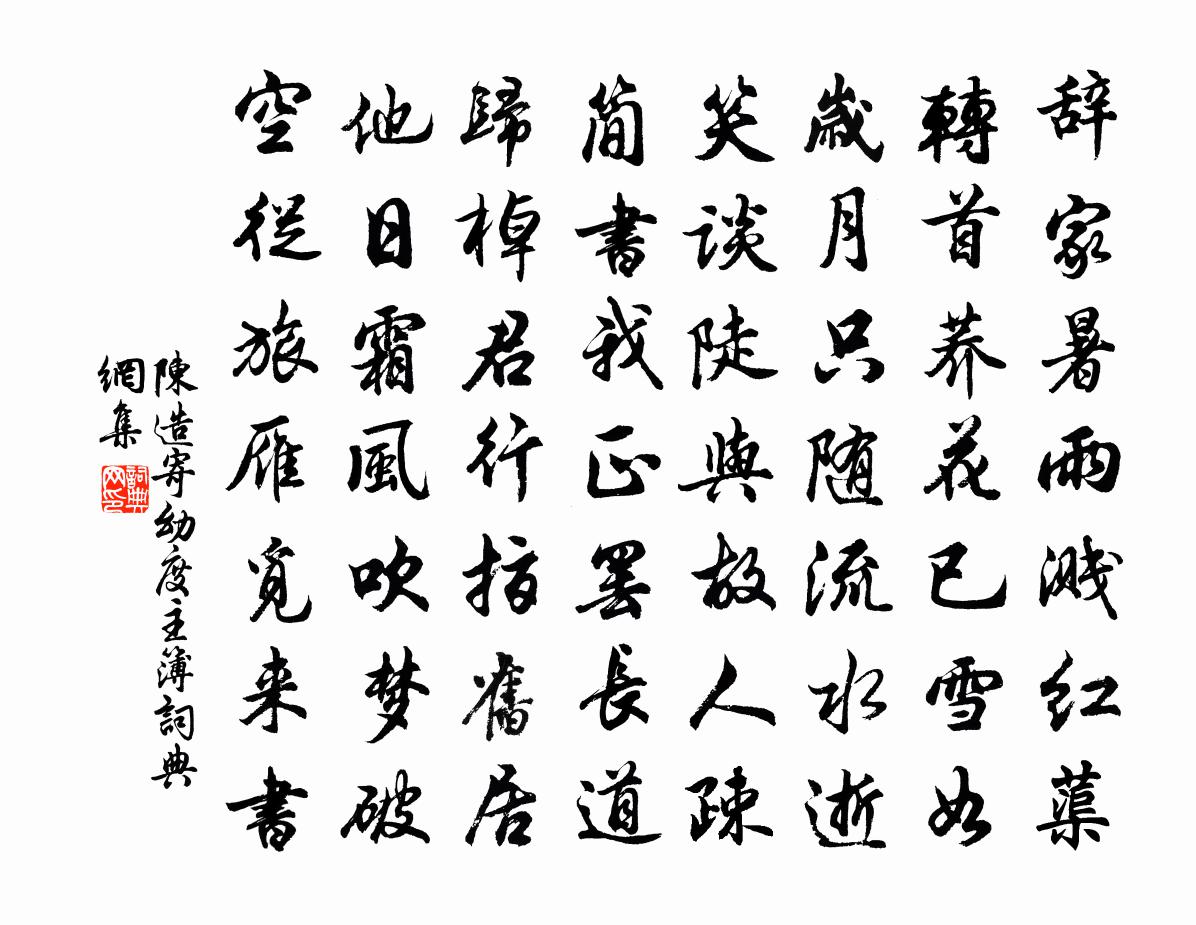 辞家暑雨溅红蕖
轉首荞花已雪如
歲月只随流水逝
笑谈陡與故人疎
简書我正罢長道
歸棹君行指舊居
他日霜風吹梦破
空從旅雁觅来書
陳造寄幼度主簿詞典
網集
詞典网印